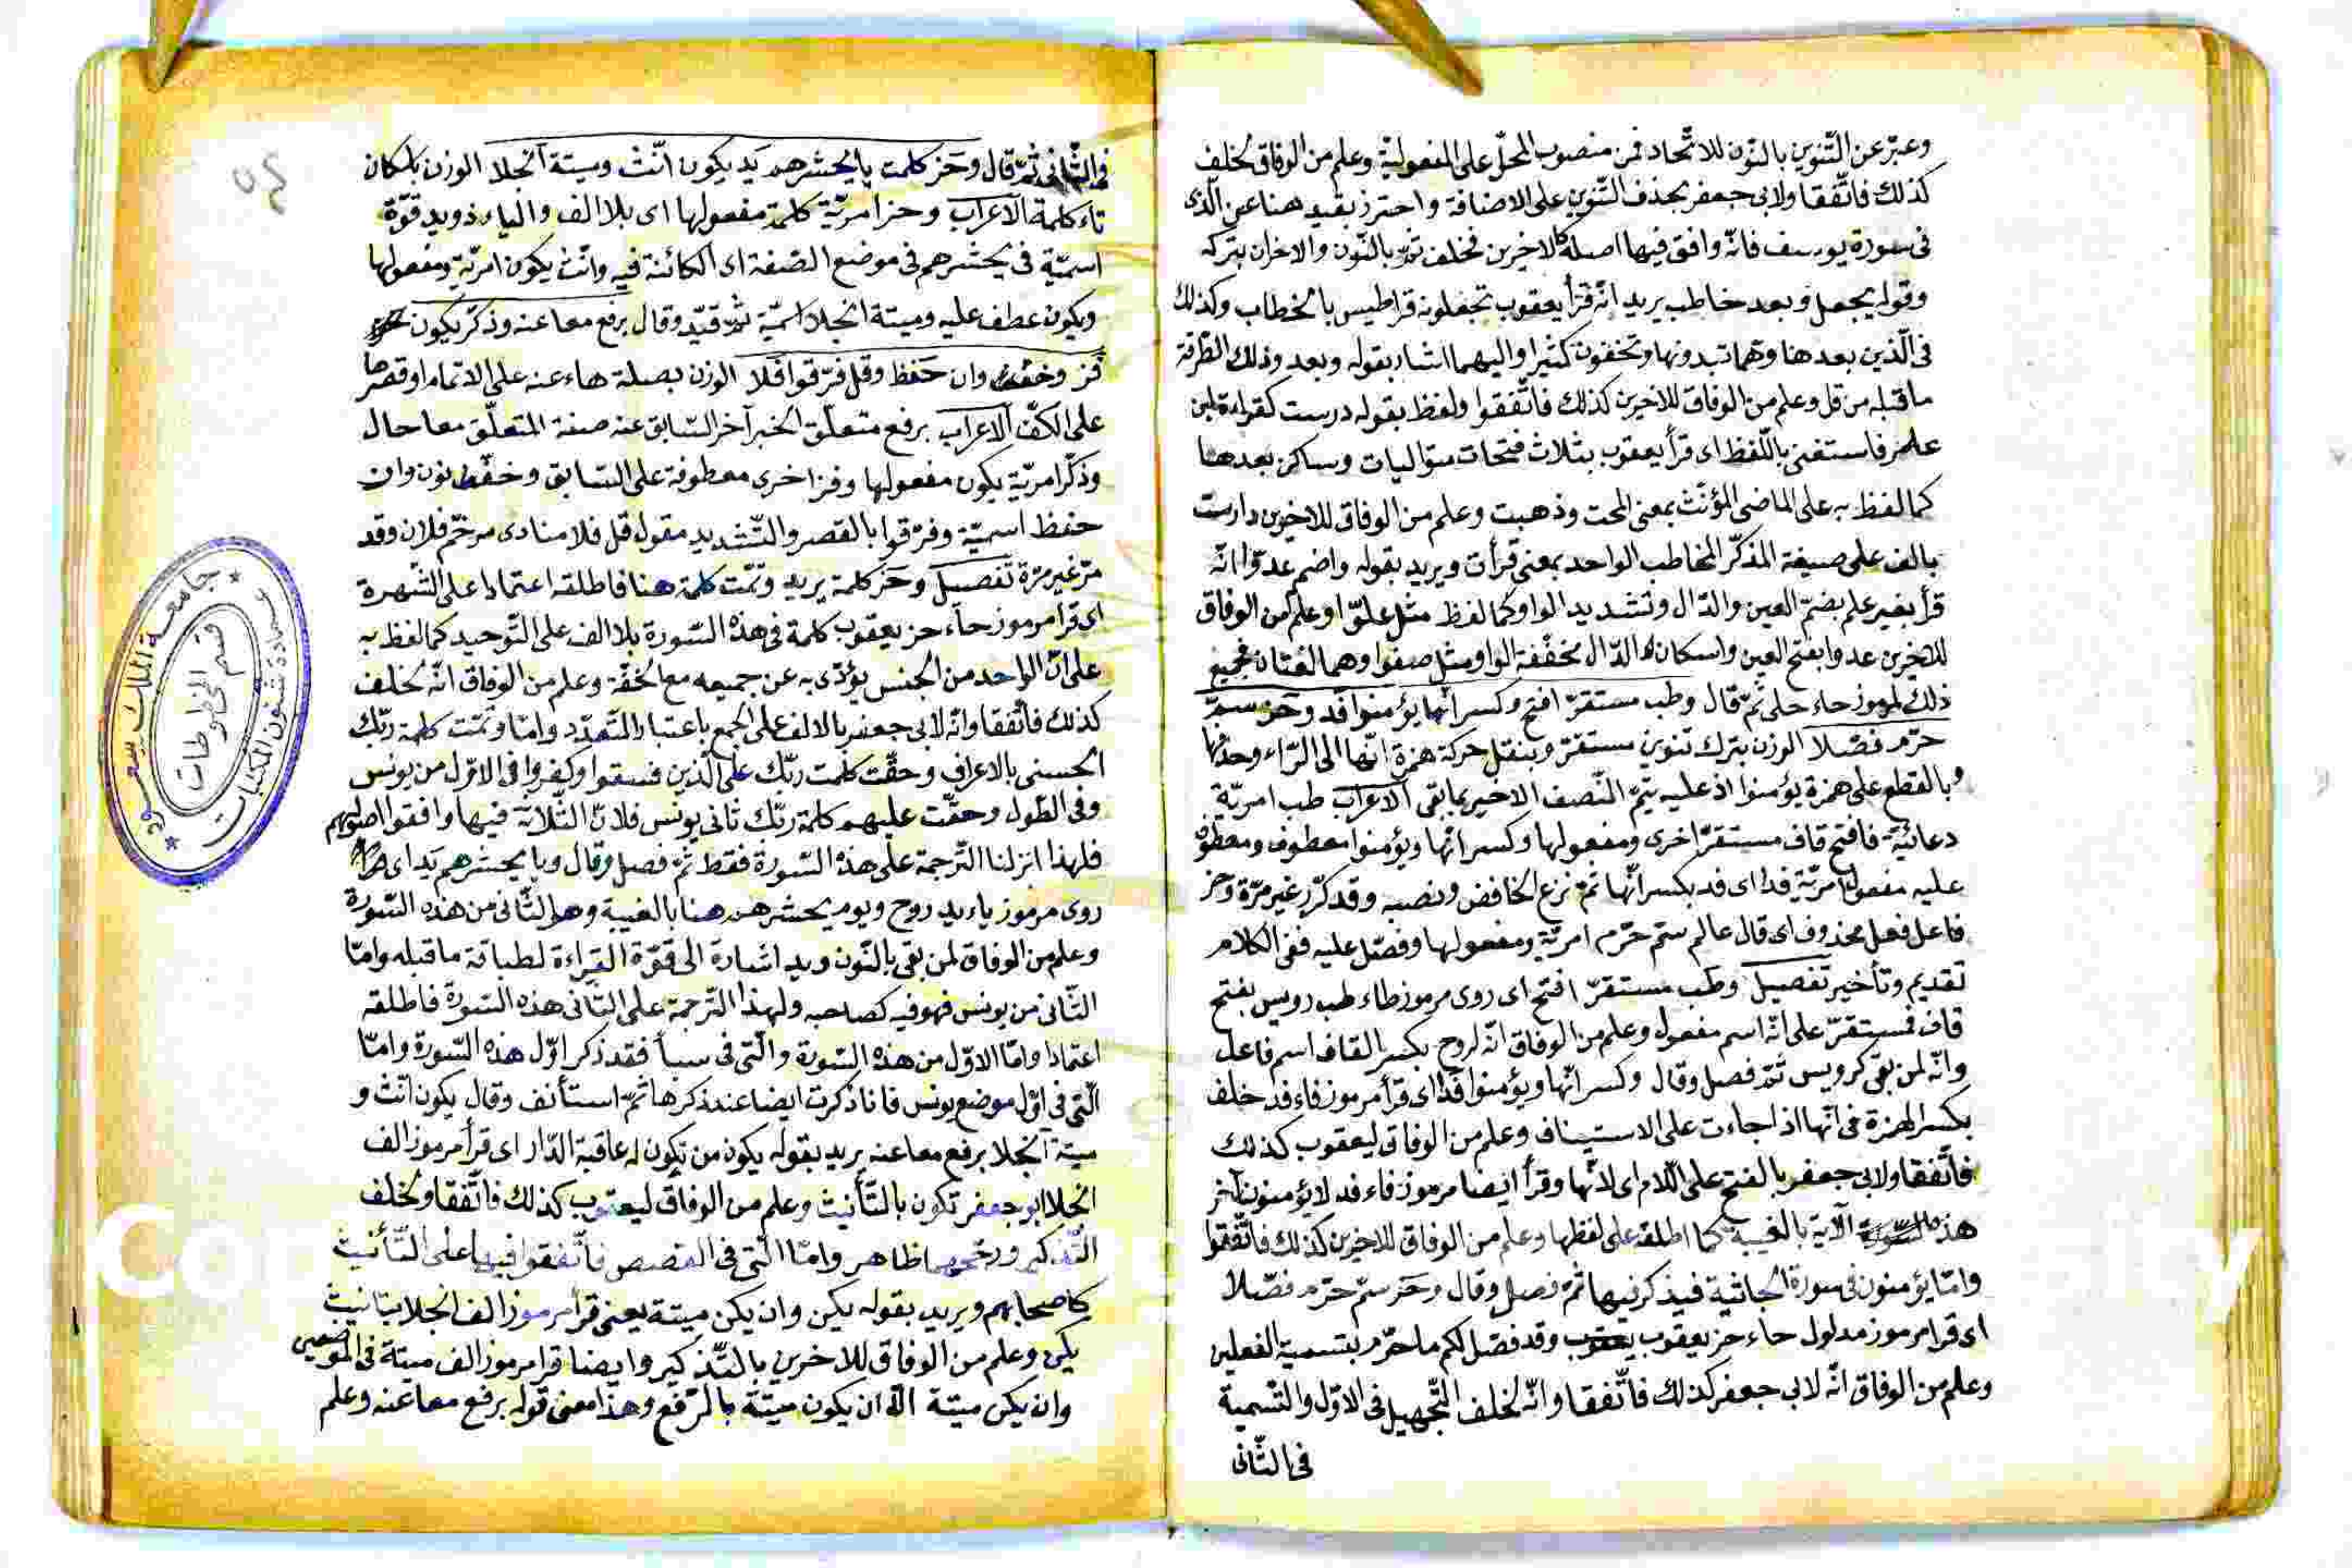 وعبّر عن التّنوين بالنّون للاتّحاد فمن منصوب المحلّ على المفعوليّة وعلم من الوفاق لخلف
كذلك فاتّفقا ولابى جعفر بحذف التّنوين على الاضافة واحترز بقيد هنا عن الّذى
فى سورة يوسف فانّه وافق فيها اصله كالاخيرين فخلف بالنّون والاخران بتركه
وقوله يجعل وبعد خاطب يريد انّه قرأ يعقوب تجعلونه قراطيس بالخطاب وكذلك
فى الّذين بعدها وهما تبدونها وتخفون كثيرا واليهما اشار بقوله وبعد وذلك لطرفة
ما قبله من قل وعلم من الوفاق للاخرين كذلك فاتّفقوا ولفظ بقوله درست كقراءة ابن
علمر فاستغنى باللّفظ اى قرأ يعقوب بثلاث فتحات متواليات وساكن بعدها
كما لفظ به على الماضى المؤنّث بمعنى انمحت وذهبت وعلم من الوفاق للاخرين دارست
بالف على صيغة المذكّر المخاطب الواحد بمعنى قرأت ويريد بقوله واضم عدوّا انّه
قرأ بغير علم بضمّ العين والدّال وتشديد الواو كما لفظ مثل علوّا وعلم من الوفاق
للاخرين عدوا بفتح العين واسكان الدّال مخفّفة الواو مثل صفوا وهما لغتان فجميع
ذلك لمرموز حاء حلى ثمّ قال وطب مستقرّ افتح وكسر انّها يؤمنوا فد وحز سمّ
حرّم فصّلا الوزن بترك تنوين مستقرّ وبنقل حركة همزة انّها الى الرّاء وحذفها
وبالقطع على همزة يؤمنوا اذ عليه يتمّ النّصف الاخير بما بقى الاعراب طب امريّة
دعائيّة فافتح قاف مستقرّ اخرى ومفعولها وكسر انّها ويؤمنوا معطوف ومعطوف
عليه مفعول امريّة فد اى فد بكسر انّها ثمّ نزع الخافض ونصبه وقد كرّر غير مرّة وحز
فاعل فعل محذوف اى قال عالم سمّ حرّم امريّة ومفعولها وفصّل عليه ففى الكلام
تقديم وتأخير تفصيل وطب مستقرّ افتح اى روى مرموز طاء طب رويس بفتح
قاف فمستقرّ على انّه اسم مفعول وعلم من الوفاق انّه لروح بكسر القاف اسم فاعل
وانّه لمن بقى كرويس ثمّ فصل وقال وكسر انّها ويؤمنوا فد اى قرأ مرموز فاء فد خلف
بكسر الهمزة فى انّها اذا جاءت على الاستيناف وعلم من الوفاق ليعقوب كذلك
فاتّفقا ولابى جعفر بالفتح على اللّام اى لانّها وقرأ ايضا مرموز فاء فد لا يؤمنون آخر
هذه الآية بالغيبة كما اطلقه على لفظها وعلم من الوفاق للاخرين كذلك فاتّفقوا
وامّا يؤمنون فى سورة الجاثية فيذكر فيها ثمّ فصل وقال وحز سمّ حرّم فصّلا
اى قرا مرموز مدلول حاء حز يعقوب وقد فصّل لكم ما حرّم بتسمية الفعلين
وعلم من الوفاق انّه لابى جعفر كذلك فاتّفقا وانّه لخلف التّجهيل فى الاوّل والتّسمية
فى الثّانى
فى الثّانى ثمّ قال وحز كلمت يا يحشرهم يد يكون انّث وميتة انجلا الوزن باسكان
تاء كلمة الاعراب وحز امريّة كلمة مفعولها اى بلا الف والياء ذو يد قوّة
اسميّة فى يحشرهم فى موضع الصّفة اى الكائنة فيه وانّث يكون امريّة ومفعولها
ويكون عطف عليه وميتة انجلا اسميّة ثمّ قيّد وقال برفع معا عنه وذكّر يكون
فز وخفّ وان حفظ وقل فرّقوا فلا الوزن بصلة هاء عنه على الاتمام او قصرها
على الكفّ الاعراب برفع متعلّق الخبر آخر السّابق عنه صفة المتعلّق معا حال
وذكّر امريّة يكون مفعولها وفز اخرى معطوفة على السّابق وخفّ نون وان
حفظ اسميّة وفرّقوا بالقصر والتّشديد مقول قل فلا منادى مرخّم فلان وقد
مرّ غير مرّة تفصيل وحز كلمة يريد وتمّت كلمة هنا فاطلقه اعتمادا على الشّهرة
اى قرا مرموز حاء حز يعقوب كلمة فى هذه السّورة بلا الف على التّوحيد كما لفظ به
على انّ الواحد من الجنس يؤدّى به عن جميعه مع الخفّة وعلم من الوفاق انّه لخلف
كذلك فاتّفقا وانّه لابى جعفر بالالف على الجمع باعتبار التّعدّد وامّا وتمّت كلمة ربّك
الحسنى بالاعراف وحقّت كلمت ربّك على الّذين فسقوا وكفروا فى الاوّل من يونس
وفى الطّول وحقّت عليهم كلمة ربّك ثانى يونس فلانّ الثّلاثة فيها وافقوا اصولهم
فلهذا انزلنا التّرجمة على هذه السّورة فقط ثمّ فصل وقال ويا يحشرهم يد اى
روى مرموز ياء يد روح ويوم يحشرهم هنا بالغيبة وهو الثّانى من هذه السّورة
وعلم من الوفاق لمن بقى بالنّون ويد اشارة الى قوّة القراءة لطباقة ما قبله وامّا
الثّانى من يونس فهو فيه كصاحبه ولهذا التّرجمة على الثّانى هذه السّورة فاطلقه
اعتمادا وامّا الاوّل من هذه السّورة والّتى فى سبأ فقد ذكر اوّل هذه السّورة وامّا
الّتى فى اوّل موضع يونس فانا ذكرت ايضا عند ذكرها ثمّ استأنف وقال يكون انّث و
ميتة انجلا برفع معا عنه يريد بقوله يكون من تكون له عاقبة الدّار اى قرأ مرموز الف
انجلا ابو جعفر تكون بالتّأنيث وعلم من الوفاق ليعقوب كذلك فاتّفقا ولخلف
التّذكير ووجههما ظاهر وامّا الّتى فى القصص فاتّفقوا فيها على التّأنيث
كاصحابهم ويريد بقوله يكن وان يكن ميتة يعنى قرأ مرموز الف انجلا بتأنيث
يكن وعلم من الوفاق للاخرين بالتّذكير وايضا قرا مرموز الف ميتة فى الموضعين
وان يكن ميتة الّا ان يكون ميتة بالرّفع وهذا معنى قوله برفع معا عنه وعلم
جامعة الملك سعود
عمادة شئون المكتبات
قسم المخطوطات